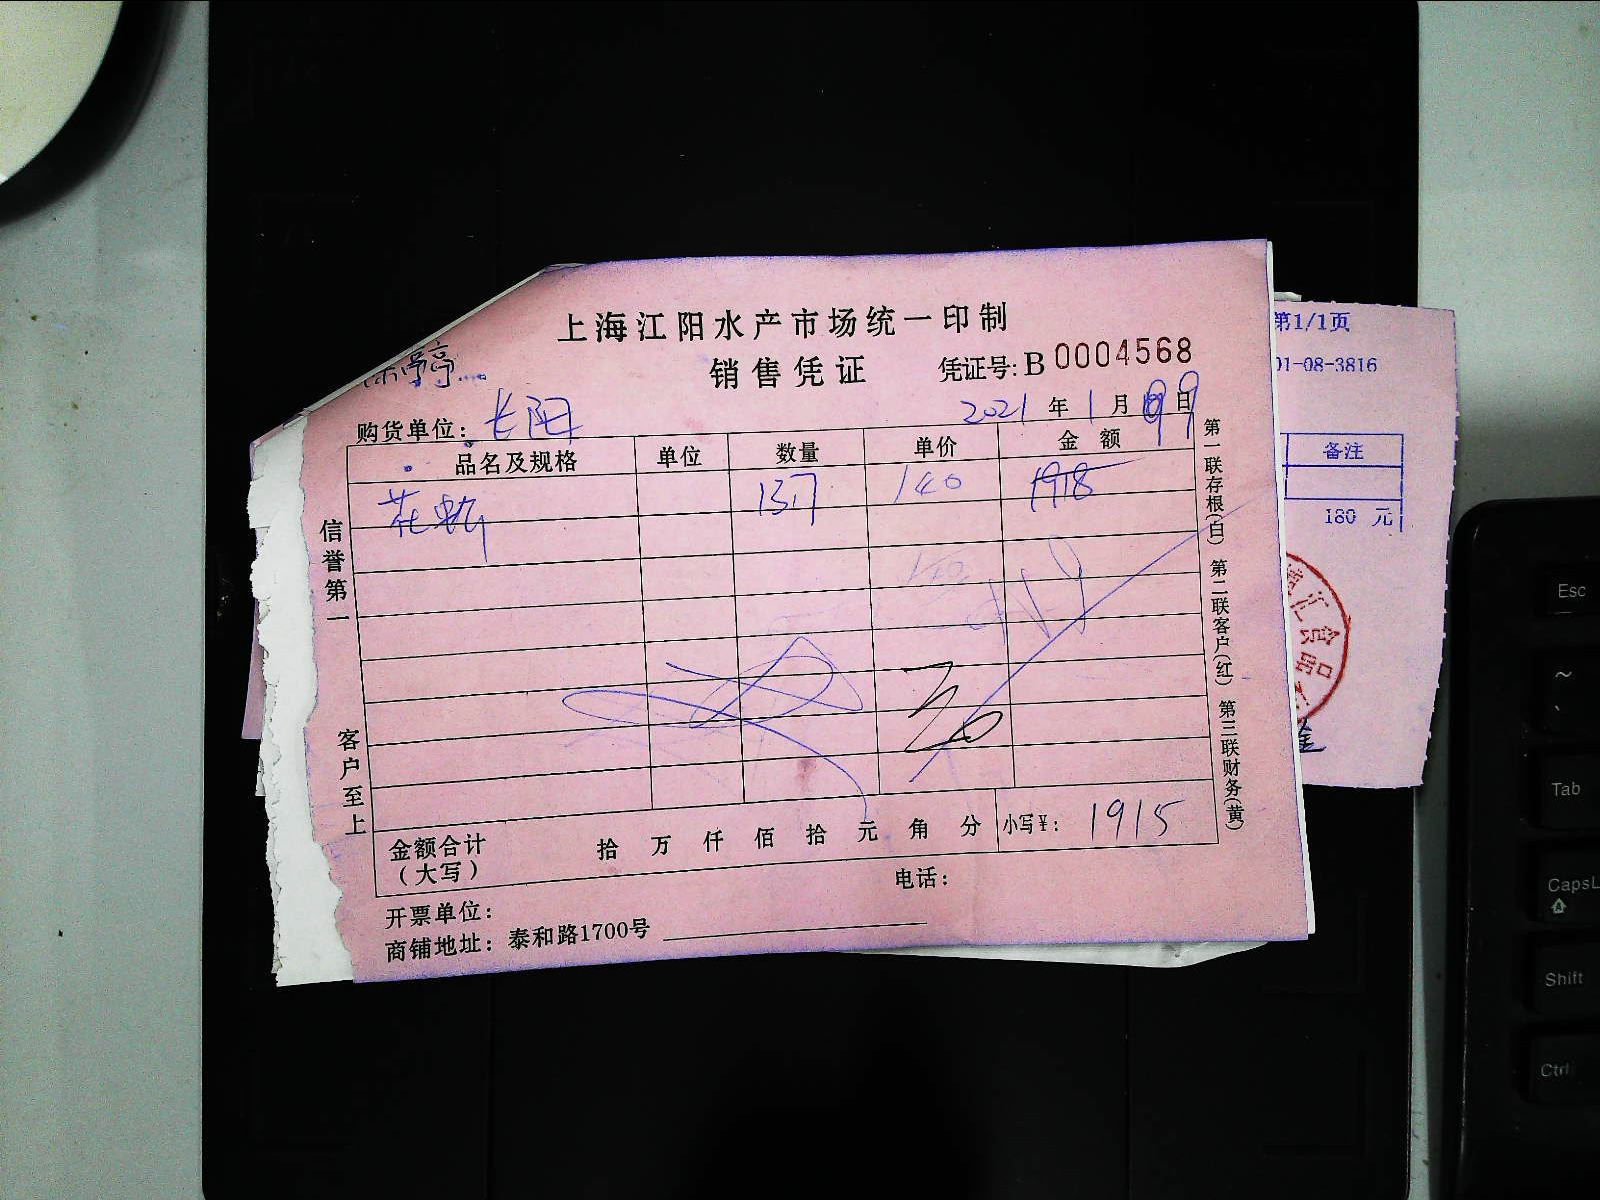 上海江阳水产市场统一印制
销售凭证 凭证号: B 0004568
婷
购货单位: 长阳 2021 年 1 月 9 日
品名及规格 单位 数量 单价 金额
花 13.7 140 1918
金额合计(大写) 拾 万 仟 佰 拾 元 角 分 小写¥: 1915
电话:
开票单位:
商铺地址: 泰和路1700号
信誉第一 客户至上
第一联存根(白) 第二联客户(红) 第三联财务(黄)
第1/1页
01-08-3816
备注
180 元
汇食品
Esc
~
Tab
CapsL
Shift
Ctrl